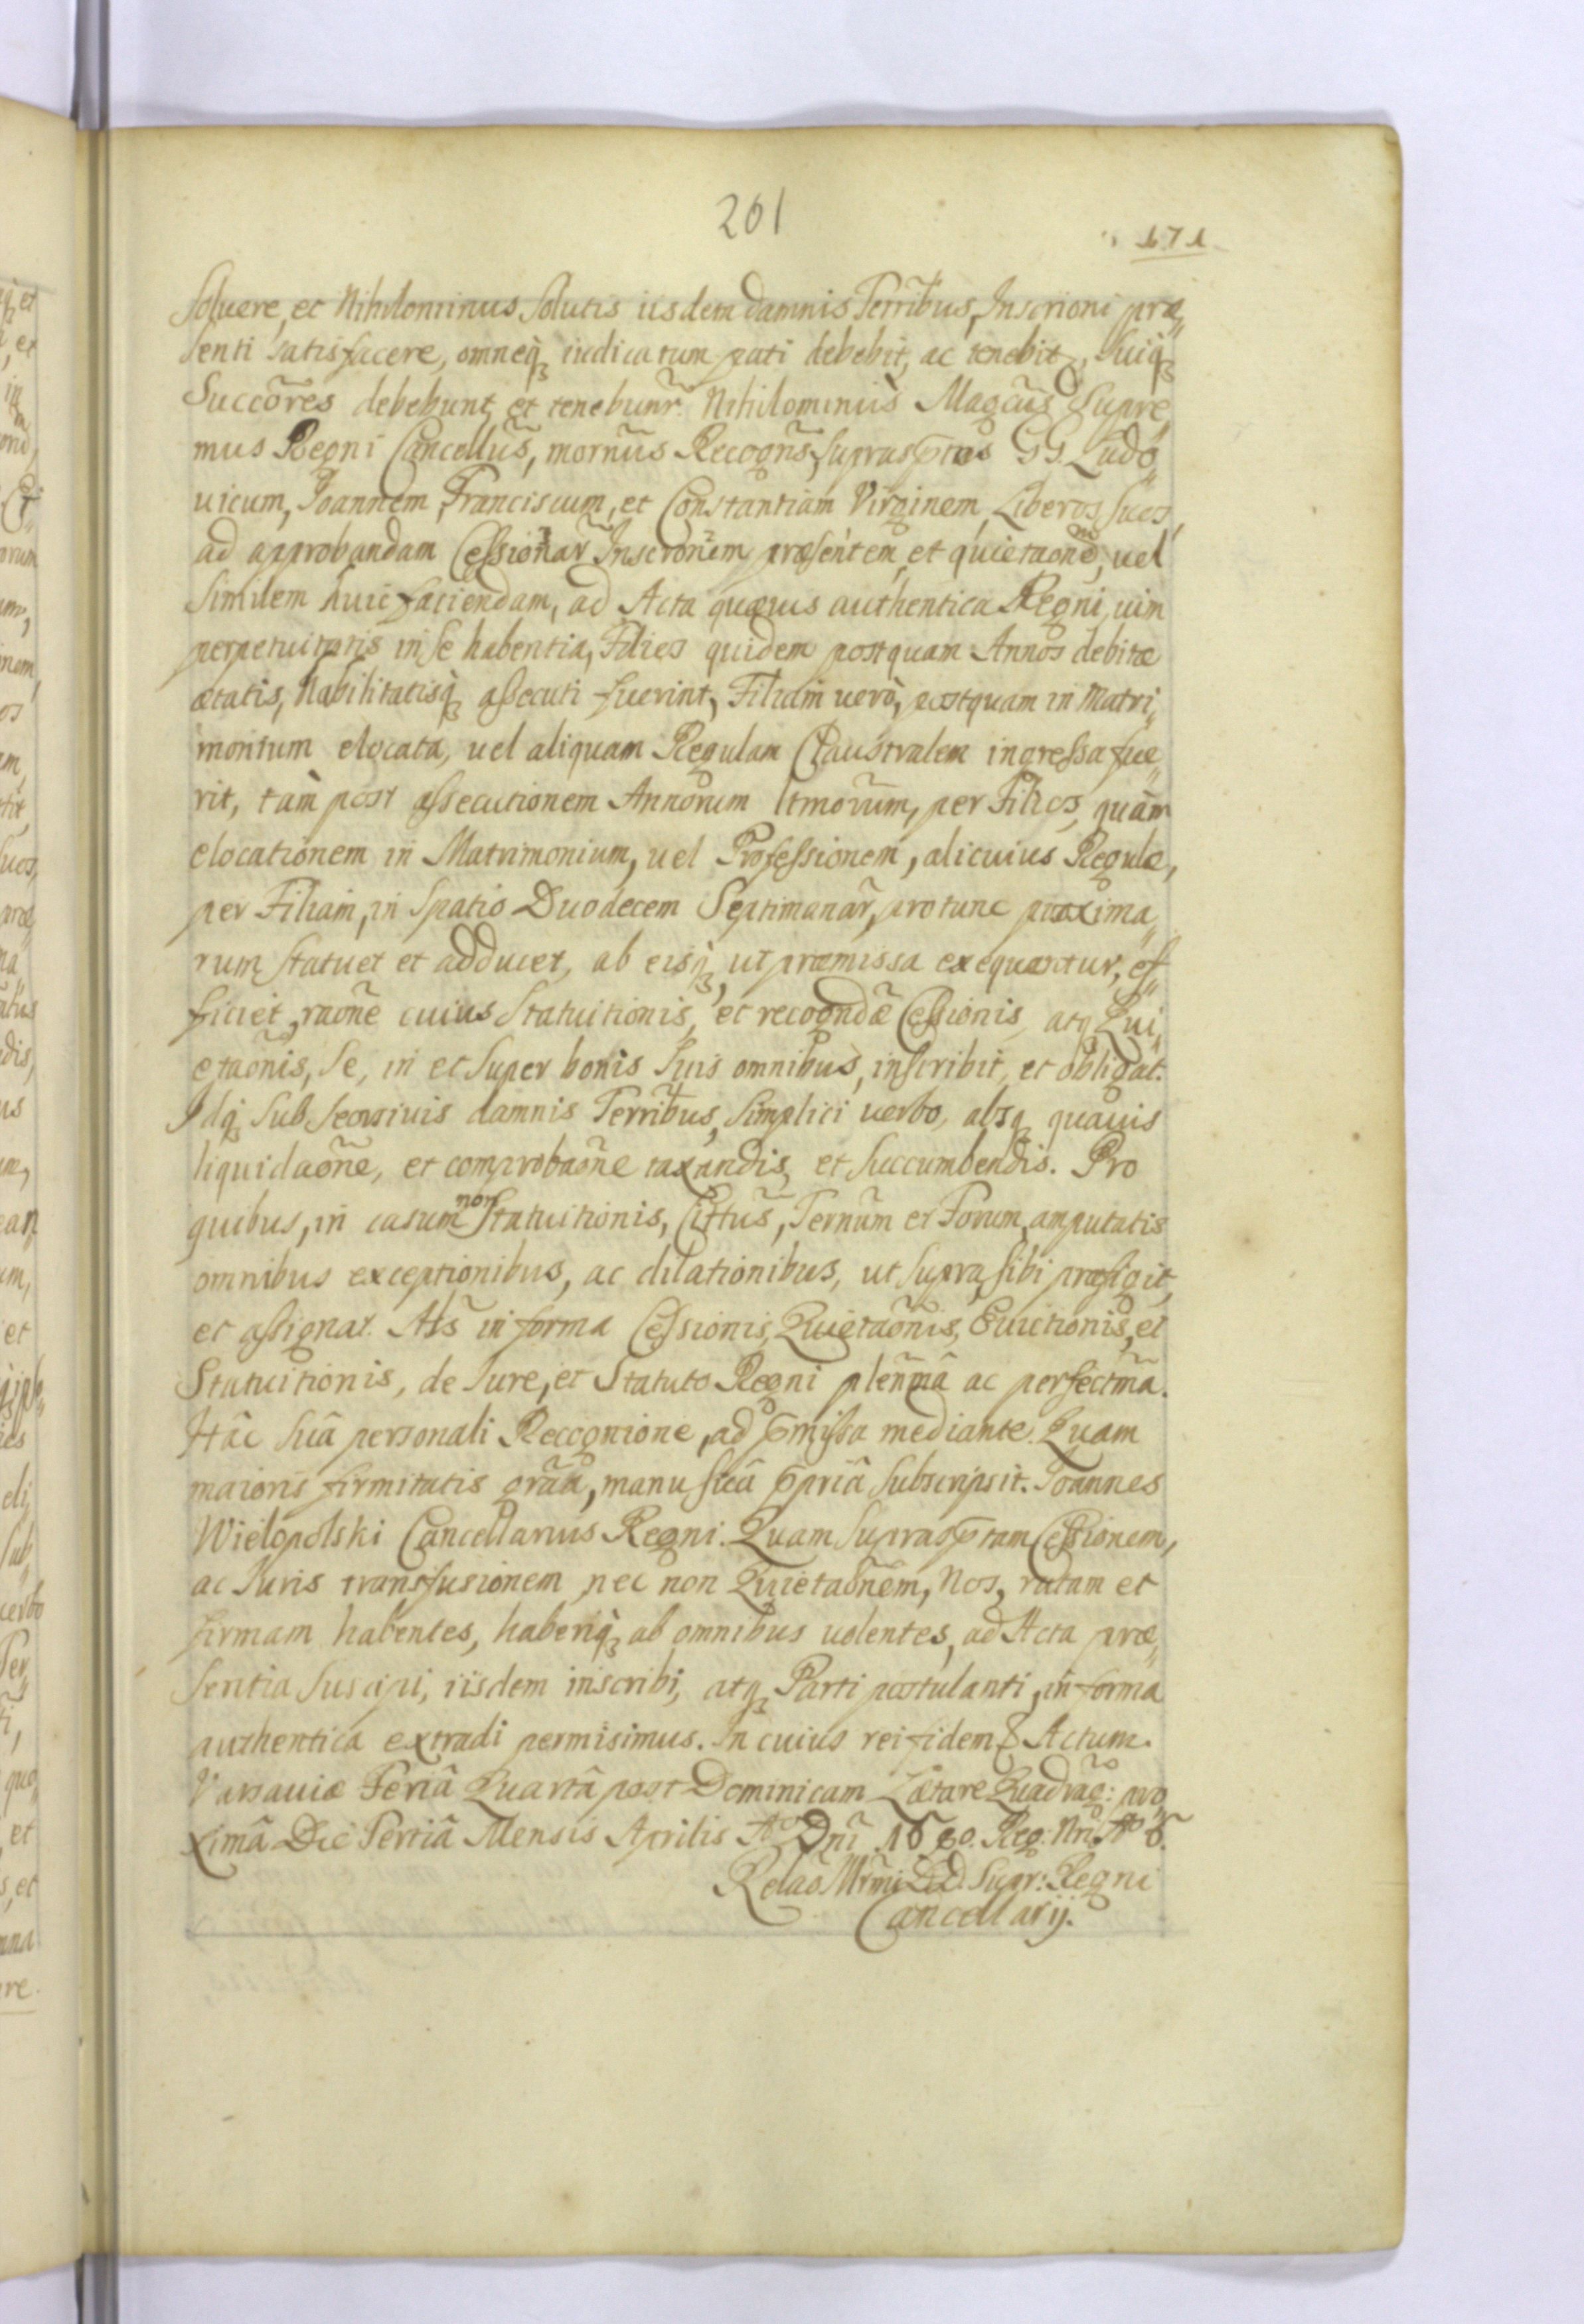 201
171
soluere, et Nihilominus solutis iisdem damnis Terribus, Inscrioni præ„
senti satisfacere, omneq̃ iudicatum pati debebit, ac tenebit, suiq̃
Succõres debebunt et tenebunr̃. Nihilominus Magcus Supre„
mus Regni Cancellũs, mornus Recogñs supraspt̃os GG. Ludo„
uicum, Joannem, Franciscum, et Constantiam Virginem, Liberos suos,
ad approbandam Cessionar̃ Inscronẽm præsentem, et quietaonẽm, uel
similem huic faciendam, ad Acta quæuis authentica Regni, uim
perpetuitatis in se habentia, Filios quidem postquam Annos debitæ
ætatis, Habilitatisq̃ assecuti fuerint, Filiam uerò, postquam in Matri„
monium elocata, uel aliquam Regulam Claustralem ingressa fue„
rit, tàm post assecutionem Annorum ltmorũm, per Filios, quàm
elocationem in Matrimonium, uel Professionem, alicuius Regulæ,
per Filiam, in spatio Duodecem Septimanar̃, pro tunc proxima„
rum statuet et adducet, ab eisq̃, ut præmissa exequantur, ef„
ficiet, raonẽ cuius Statuitionis, et recogndæ̃ Cessionis, atq̃ Qui„
etaõnis, se, in et super bonis suis omnibus, inscribit, et obligat.
Idq̃ sub seorsiuis damnis Terribus, simplici uerbo, absq̃ quauis
liquidaõne, et comprobaõne taxandis, et succumbendis. Pro
quibus, in casum non Statuitionis, Cittus̃, Ternũm et Forum, amputatis
omnibus exceptionibus, ac dilationibus, ut supra, sibi præfigit,
et assignat. Als̃ in forma Cessionis, Quietaõnis, Euictionis, et
Statuitionis, de Iure, et Statuto Regni plenm̃â ac perfectm̃a.
Hâc suâ personali Recognione, ad p̃missa mediante. Quam
maioris firmitatis grãâ, manu suâ p̃priâ subscripsit. Joannes
Wielopolski Cancellarius Regni. Quam supraspt̃am Cessionem,
ac Iuris transfusionem, nec non Quietaõnem, Nos, ratam et
firmam habentes, haberiq̃ ab omnibus uolentes, ad Acta præ„
sentia suscipi, iisdem inscribi, atq̃ Parti postulanti, in forma
authentica extradi permisimus. In cuius rei fidem & Actum.
Varsauiæ Feriâ Quartâ post Dominicam Lætare Quadrag: pro„
ximâ Die Tertiâ Mensis Aprilis Aº Dnĩ 1680. Reg: Nri Aº 6.
Relaõ Illrmi DD. Supr: Regni
Cancellarij.